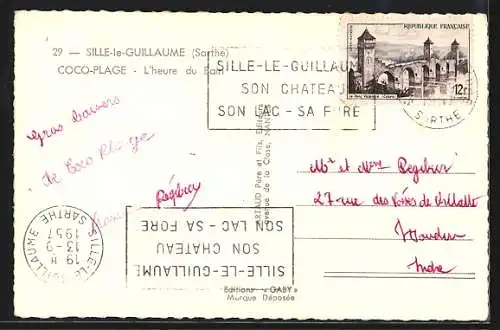 29 — SILLE-le-GUILLAUME (Sarthe)
COCO-PLAGE - L'heure du Bain
REPUBLIQUE FRANÇAISE
12F
SILLE-LE-GUILLAUME
SON CHATEAU
SON LAC - SA FORE
SARTHE
Gros baisers
de Coco Plage
ARTAUD Père et Fils, Editeurs
avenue de la Close, NANTES
Mr et Mme
27 rue des
Indre
SILLE-LE-GUILLAUME
SON CHATEAU
SON LAC - SA FORE
SILLE-LE-GUILLAUME
SARTHE
19 H
13-9
1957
Editions "GABY"
Marque Déposée